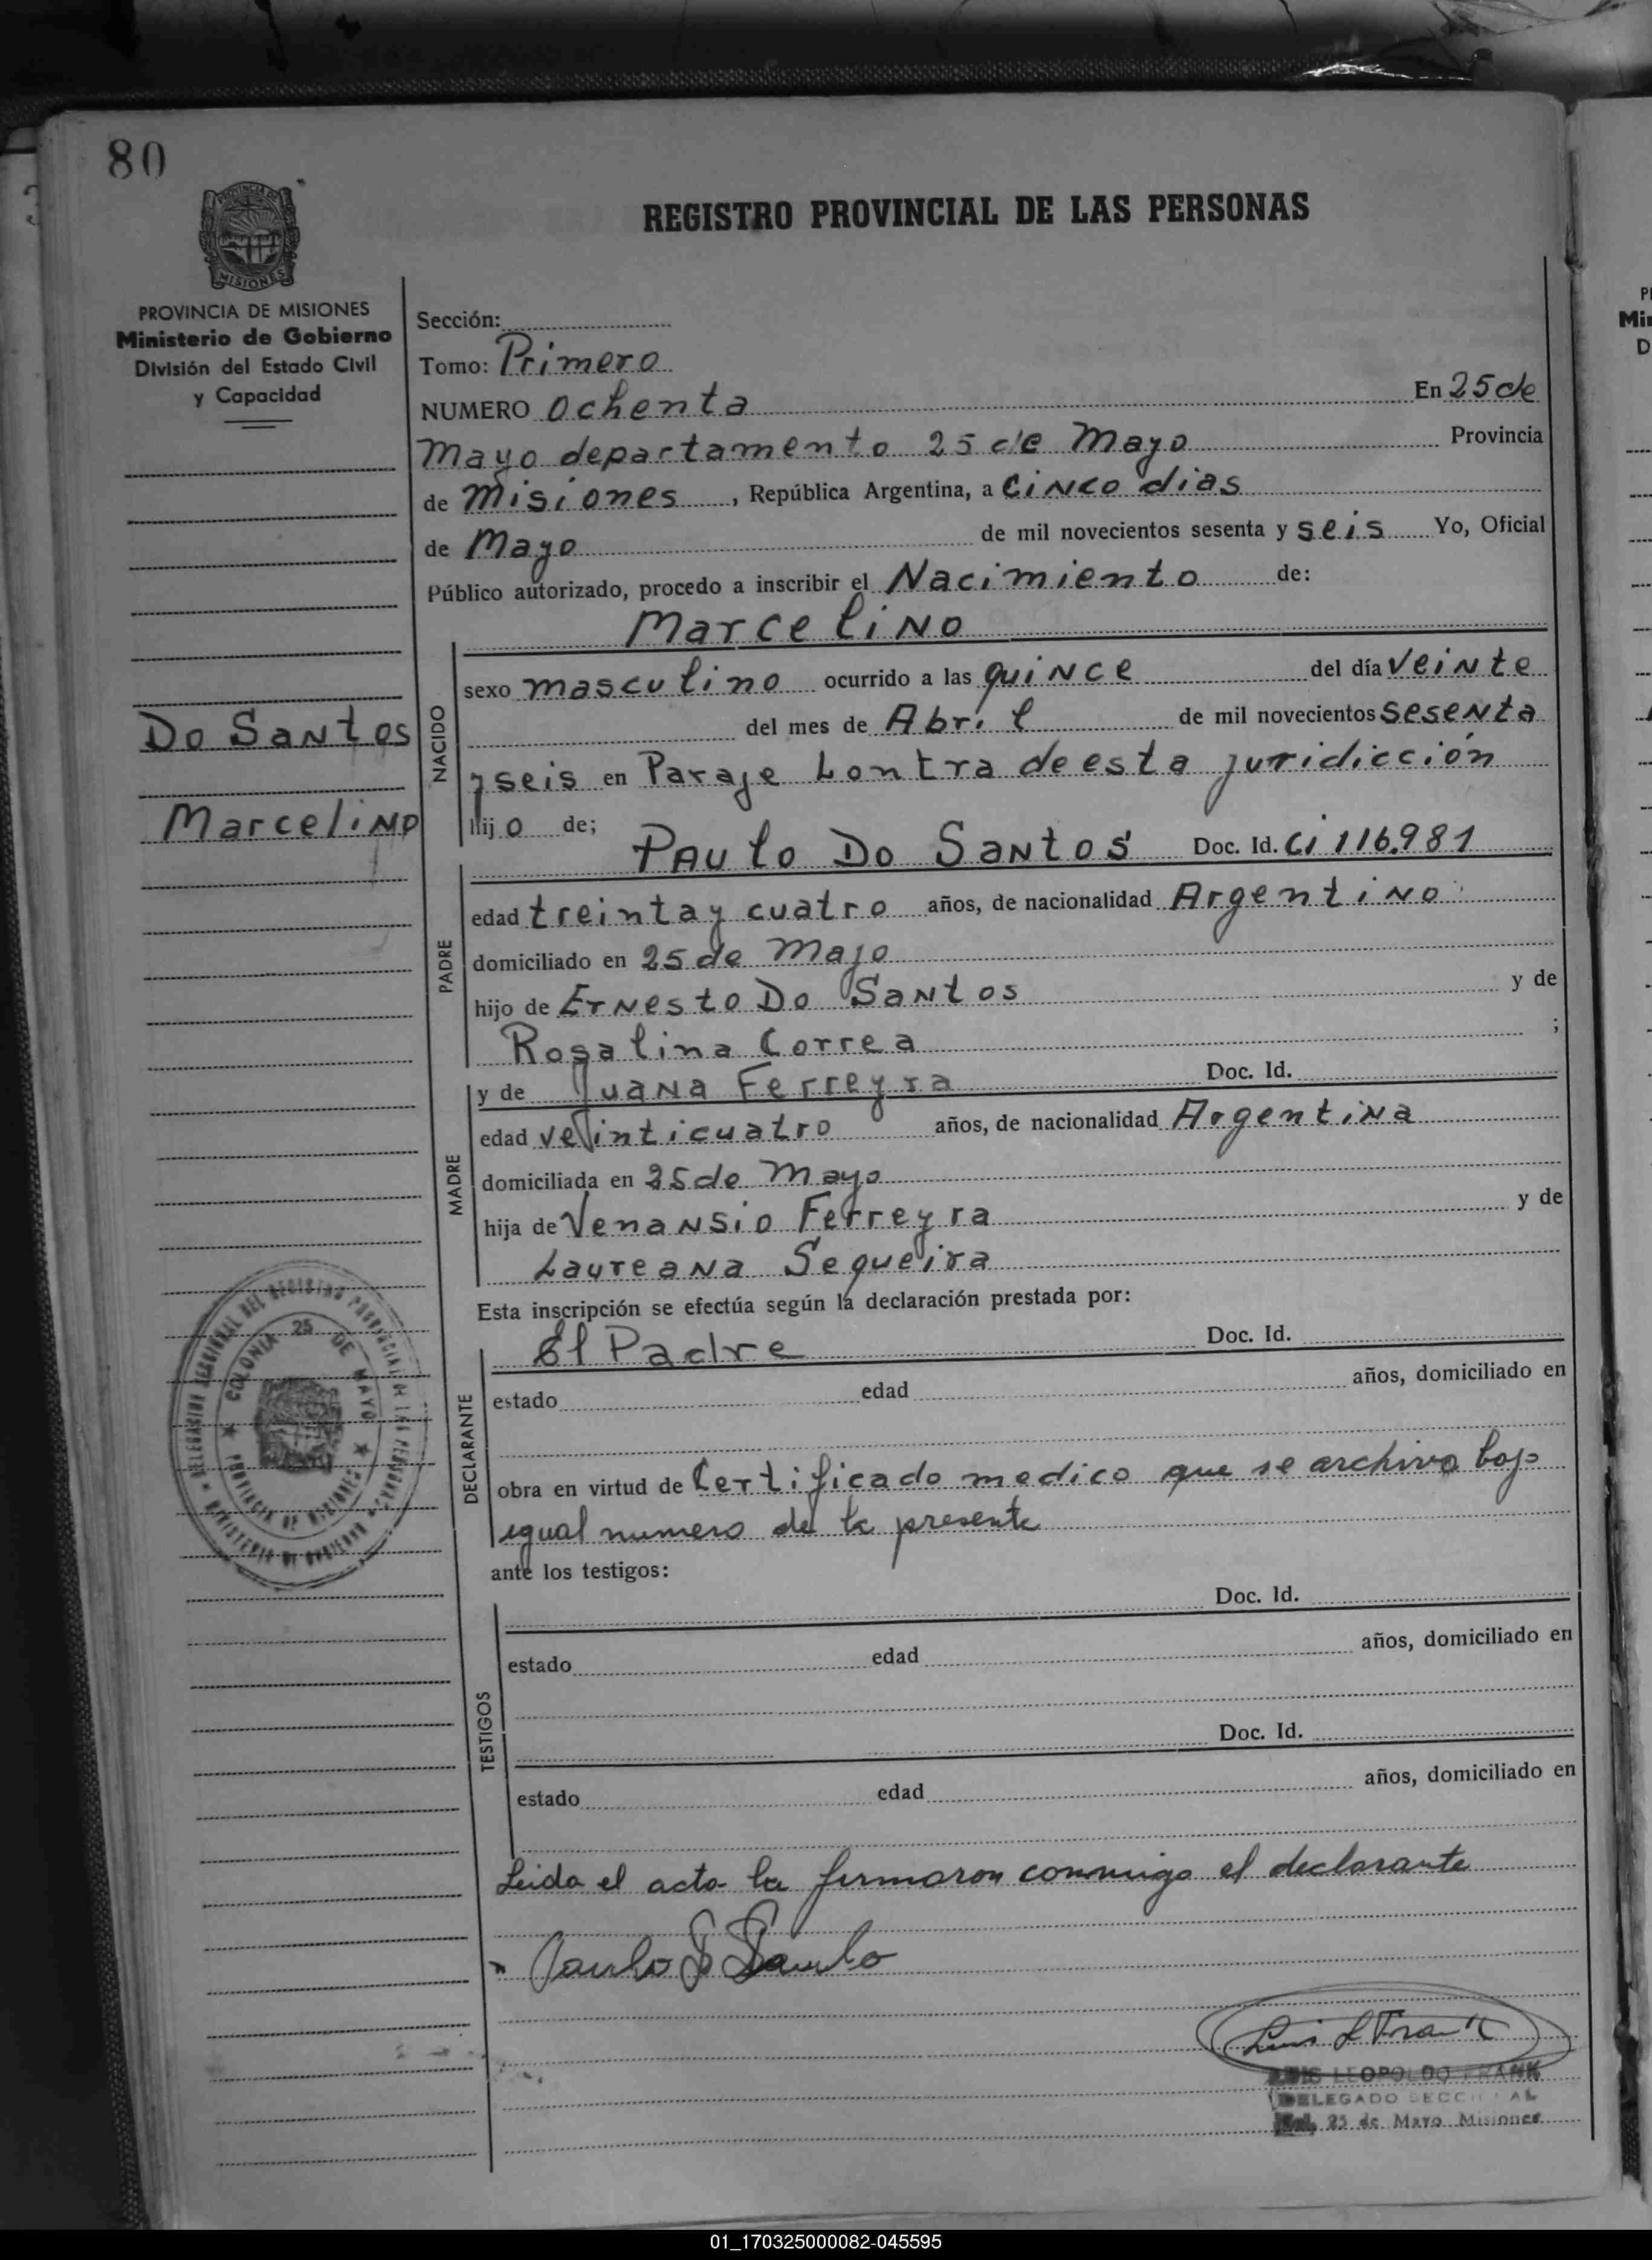 80
PROVINCIA DE
MISIONES
REGISTRO PROVINCIAL DE LAS PERSONAS
PROVINCIA DE MISIONES
Ministerio de Gobierno
División del Estado Civil
y Capacidad
Do Santos
Marcelino
Sección:
Tomo: Primero
NUMERO ochenta En 25 de
Mayo departamento 25 de Mayo Provincia
de Misiones, República Argentina, a cinco dias
de Mayo de mil novecientos sesenta y seis Yo, Oficial
Público autorizado, procedo a inscribir el Nacimiento de:
Marcelino
NACIDO
sexo masculino ocurrido a las quince del día veinte
del mes de Abril de mil novecientos sesenta
y seis en Paraje Lontra de esta juridicción
hijo de;
Paulo Do Santos Doc. Id. Ci 116.981
PADRE
edad treinta y cuatro años, de nacionalidad Argentino
domiciliado en 25 de Mayo
hijo de Ernesto Do Santos y de
Rosalina Correa ;
y de Juana Ferreyra Doc. Id.
MADRE
edad veinticuatro años, de nacionalidad Argentina
domiciliada en 25 de Mayo
hija de Venansio Ferreyra y de
Laureana Sequeira
Esta inscripción se efectúa según la declaración prestada por:
El Padre Doc. Id.
DECLARANTE
estado edad años, domiciliado en
obra en virtud de Certificado medico que se archiva bajo
igual numero de la presente
ante los testigos:
Doc. Id.
TESTIGOS
estado edad años, domiciliado en
Doc. Id.
estado edad años, domiciliado en
Leida el acta la firmaron conmigo el declarante
DELEGACION SECCIONAL DEL REGISTRO PROVINCIAL DE LAS PERSONAS
MINISTERIO DE GOBIERNO
COLONIA 25 DE MAYO
PROVINCIA DE MISIONES
Luis L Frank
LUIS LEOPOLDO FRANK
DELEGADO SECCIONAL
Col. 25 de Mayo Misiones
01_170325000082-045595